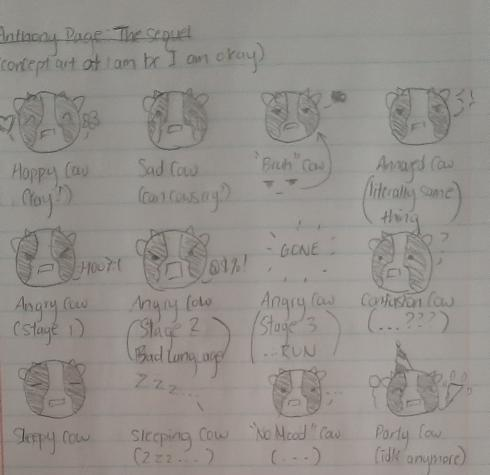 Anthony Page: The sequel
(concept art at 1am bc I am okay)
Happy Cow
(Yay!)
Sad Cow
(can cows cry?)
"Bruh" Cow
Annoyed Cow
(literally same
thing)
Angry Cow
(Stage 1)
@$%!
Angry Cow
(Stage 2
Bad Language)
GONE
Angry Cow
(Stage 3
...RUN)
? ? ?
Confusion Cow
(...???)
Sleepy Cow
Zzz...
Sleeping Cow
(Zzz...)
"No Mood" Cow
(...)
Party Cow
(idk anymore)